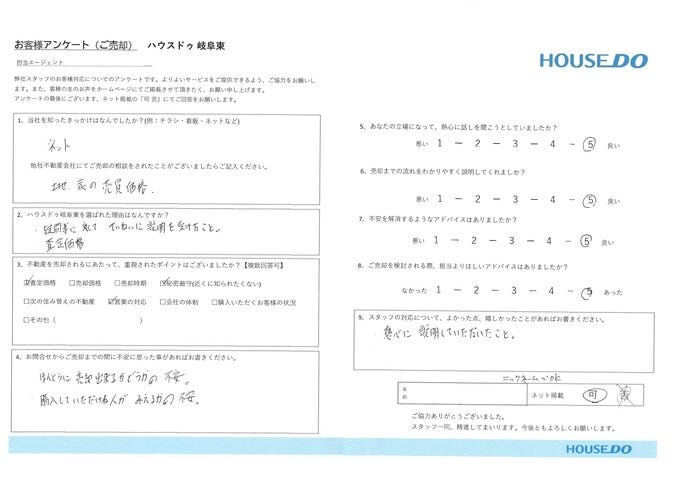 お客様アンケート（ご売却） ハウスドゥ 岐阜東
HOUSEDO
担当エージェント
弊社スタッフのお客様対応についてのアンケートです。よりよいサービスをご提供できるよう、ご協力をお願いし
ます。また、客様の生のお声をホームページにてご掲載させて頂きたく、お願い申し上げます。
アンケートの最後にございます、ネット掲載の「可 否」にてご回答をお願いします。
1、当社を知ったきっかけはなんでしたか？(例：チラシ・看板・ネットなど)
ネット
他社不動産会社にてご売却の相談をされたことがございましたらご記入ください。
土地、家の売買価格.
2、ハウスドゥ岐阜東を選ばれた理由はなんですか？
・疑問等に対して ていねいに説明を受けたこと。
・査定価格
3、不動産を売却されるにあたって、重視されたポイントはございましたか？【複数回答可】
☑査定価格 □売却価格 □売却時期 ☑秘密厳守(近くに知られたくない)
□次の住み替えの不動産 ☑営業の対応 □会社の体制 □購入いただくお客様の状況
□その他（ ）
4、お問合せからご売却までの間に不安に思った事があればお書きください。
ほんとうに売却出来るかどうかの不安。
・購入していただける人が みえるかの不安。
5、あなたの立場になって、熱心に話しを聞こうとしていましたか？
悪い 1 － 2 － 3 － 4 － 5 良い
6、売却までの流れをわかりやすく説明してくれましたか？
悪い 1 － 2 － 3 － 4 － 5 良い
7、不安を解消するようなアドバイスはありましたか？
悪い 1 － 2 － 3 － 4 － 5 良い
8、ご売却を検討される際、担当よりほしいアドバイスはありましたか？
なかった 1 － 2 － 3 － 4 － 5 あった
9、スタッフの対応について、よかった点、嬉しかったことがあればお書きください。
・懇切に説明していただいたこと。
ニックネームでOK
ネット掲載 可 否
ご協力ありがとうございました。
スタッフ一同、精進してまいります。今後ともよろしくお願いします。
HOUSEDO